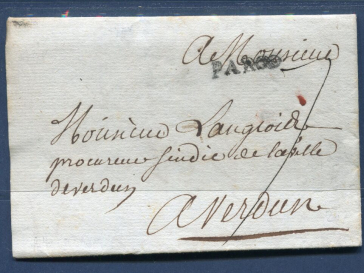 A Monsieur
PARIS
Monsieur Langloide
procureur sindic de laville
deverdun
A Verdun